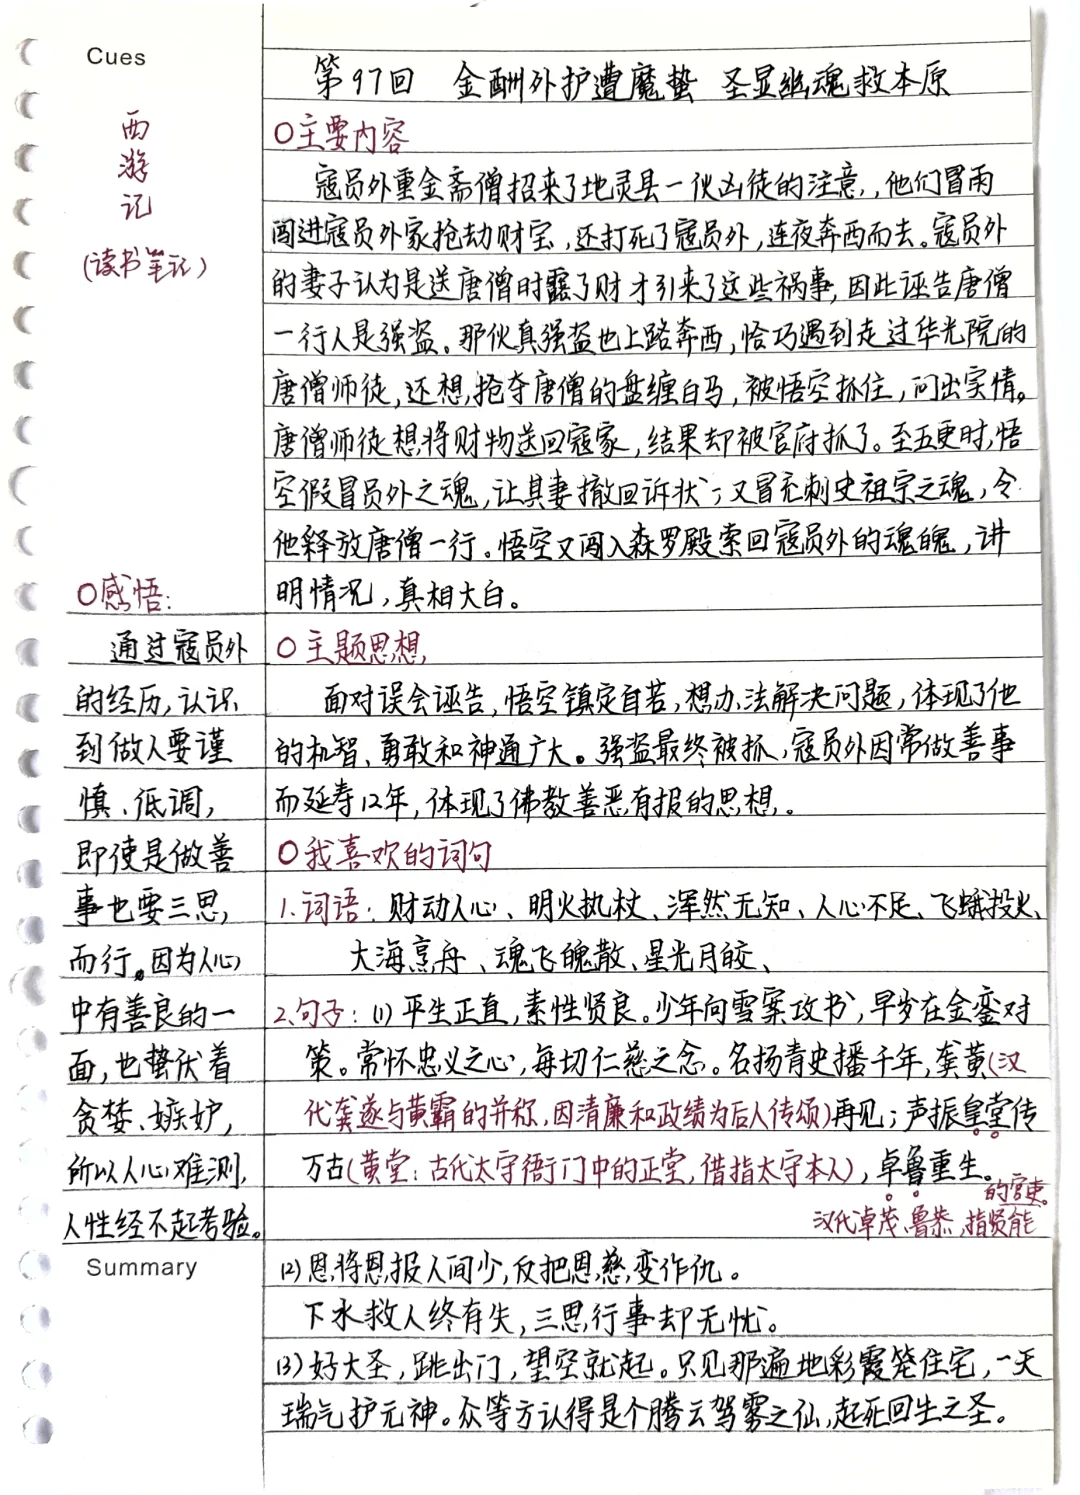 Cues
西
游
记
(读书笔记)
第97回 金酬外护遭魔蛰 圣显幽魂救本原
○主要内容
寇员外重金斋僧招来了地灵县一伙凶徒的注意,他们冒雨
闯进寇员外家抢劫财宝,还打死了寇员外,连夜奔西而去。寇员外
的妻子认为是送唐僧时露了财才引来了这些祸事,因此诬告唐僧
一行人是强盗。那伙真强盗也上路奔西,恰巧遇到走过华光院的
唐僧师徒,还想抢夺唐僧的盘缠白马,被悟空抓住,问出实情。
唐僧师徒想将财物送回寇家,结果却被官府抓了。至五更时,悟
空假冒员外之魂,让其妻撤回诉状;又冒充刺史祖宗之魂,令
他释放唐僧一行。悟空又闯入森罗殿索回寇员外的魂魄,讲
明情况,真相大白。
○主题思想
面对误会诬告,悟空镇定自若,想办法解决问题,体现了他
的机智、勇敢和神通广大。强盗最终被抓,寇员外因常做善事
而延寿12年,体现了佛教善恶有报的思想。
○我喜欢的词句
1.词语:财动人心、明火执杖、浑然无知、人心不足、飞蛾投火、
大海烹舟、魂飞魄散、星光月皎、
2.句子:(1)平生正直,素性贤良。少年向雪案攻书,早岁在金銮对
策。常怀忠义之心,每切仁慈之念。名扬青史播千年,龚黄(汉
代龚遂与黄霸的并称,因清廉和政绩为后人传颂)再见;声振皇堂传
万古(黄堂:古代太守衙门中的正堂,借指太守本人),卓鲁重生。
汉代卓茂、鲁恭,指贤能
的官吏。
(2)恩将恩报人间少,反把恩慈变作仇。
下水救人终有失,三思行事却无忧。
(3)好大圣,跳出门,望空就起。只见那遍地彩霞笼住宅,一天
瑞气护元神。众等方认得是个腾云驾雾之仙,起死回生之圣。
○感悟:
通过寇员外
的经历,认识
到做人要谨
慎、低调,
即使是做善
事也要三思,
而行。因为人心
中有善良的一
面,也蛰伏着
贪婪、嫉妒,
所以人心难测,
人性经不起考验。
Summary